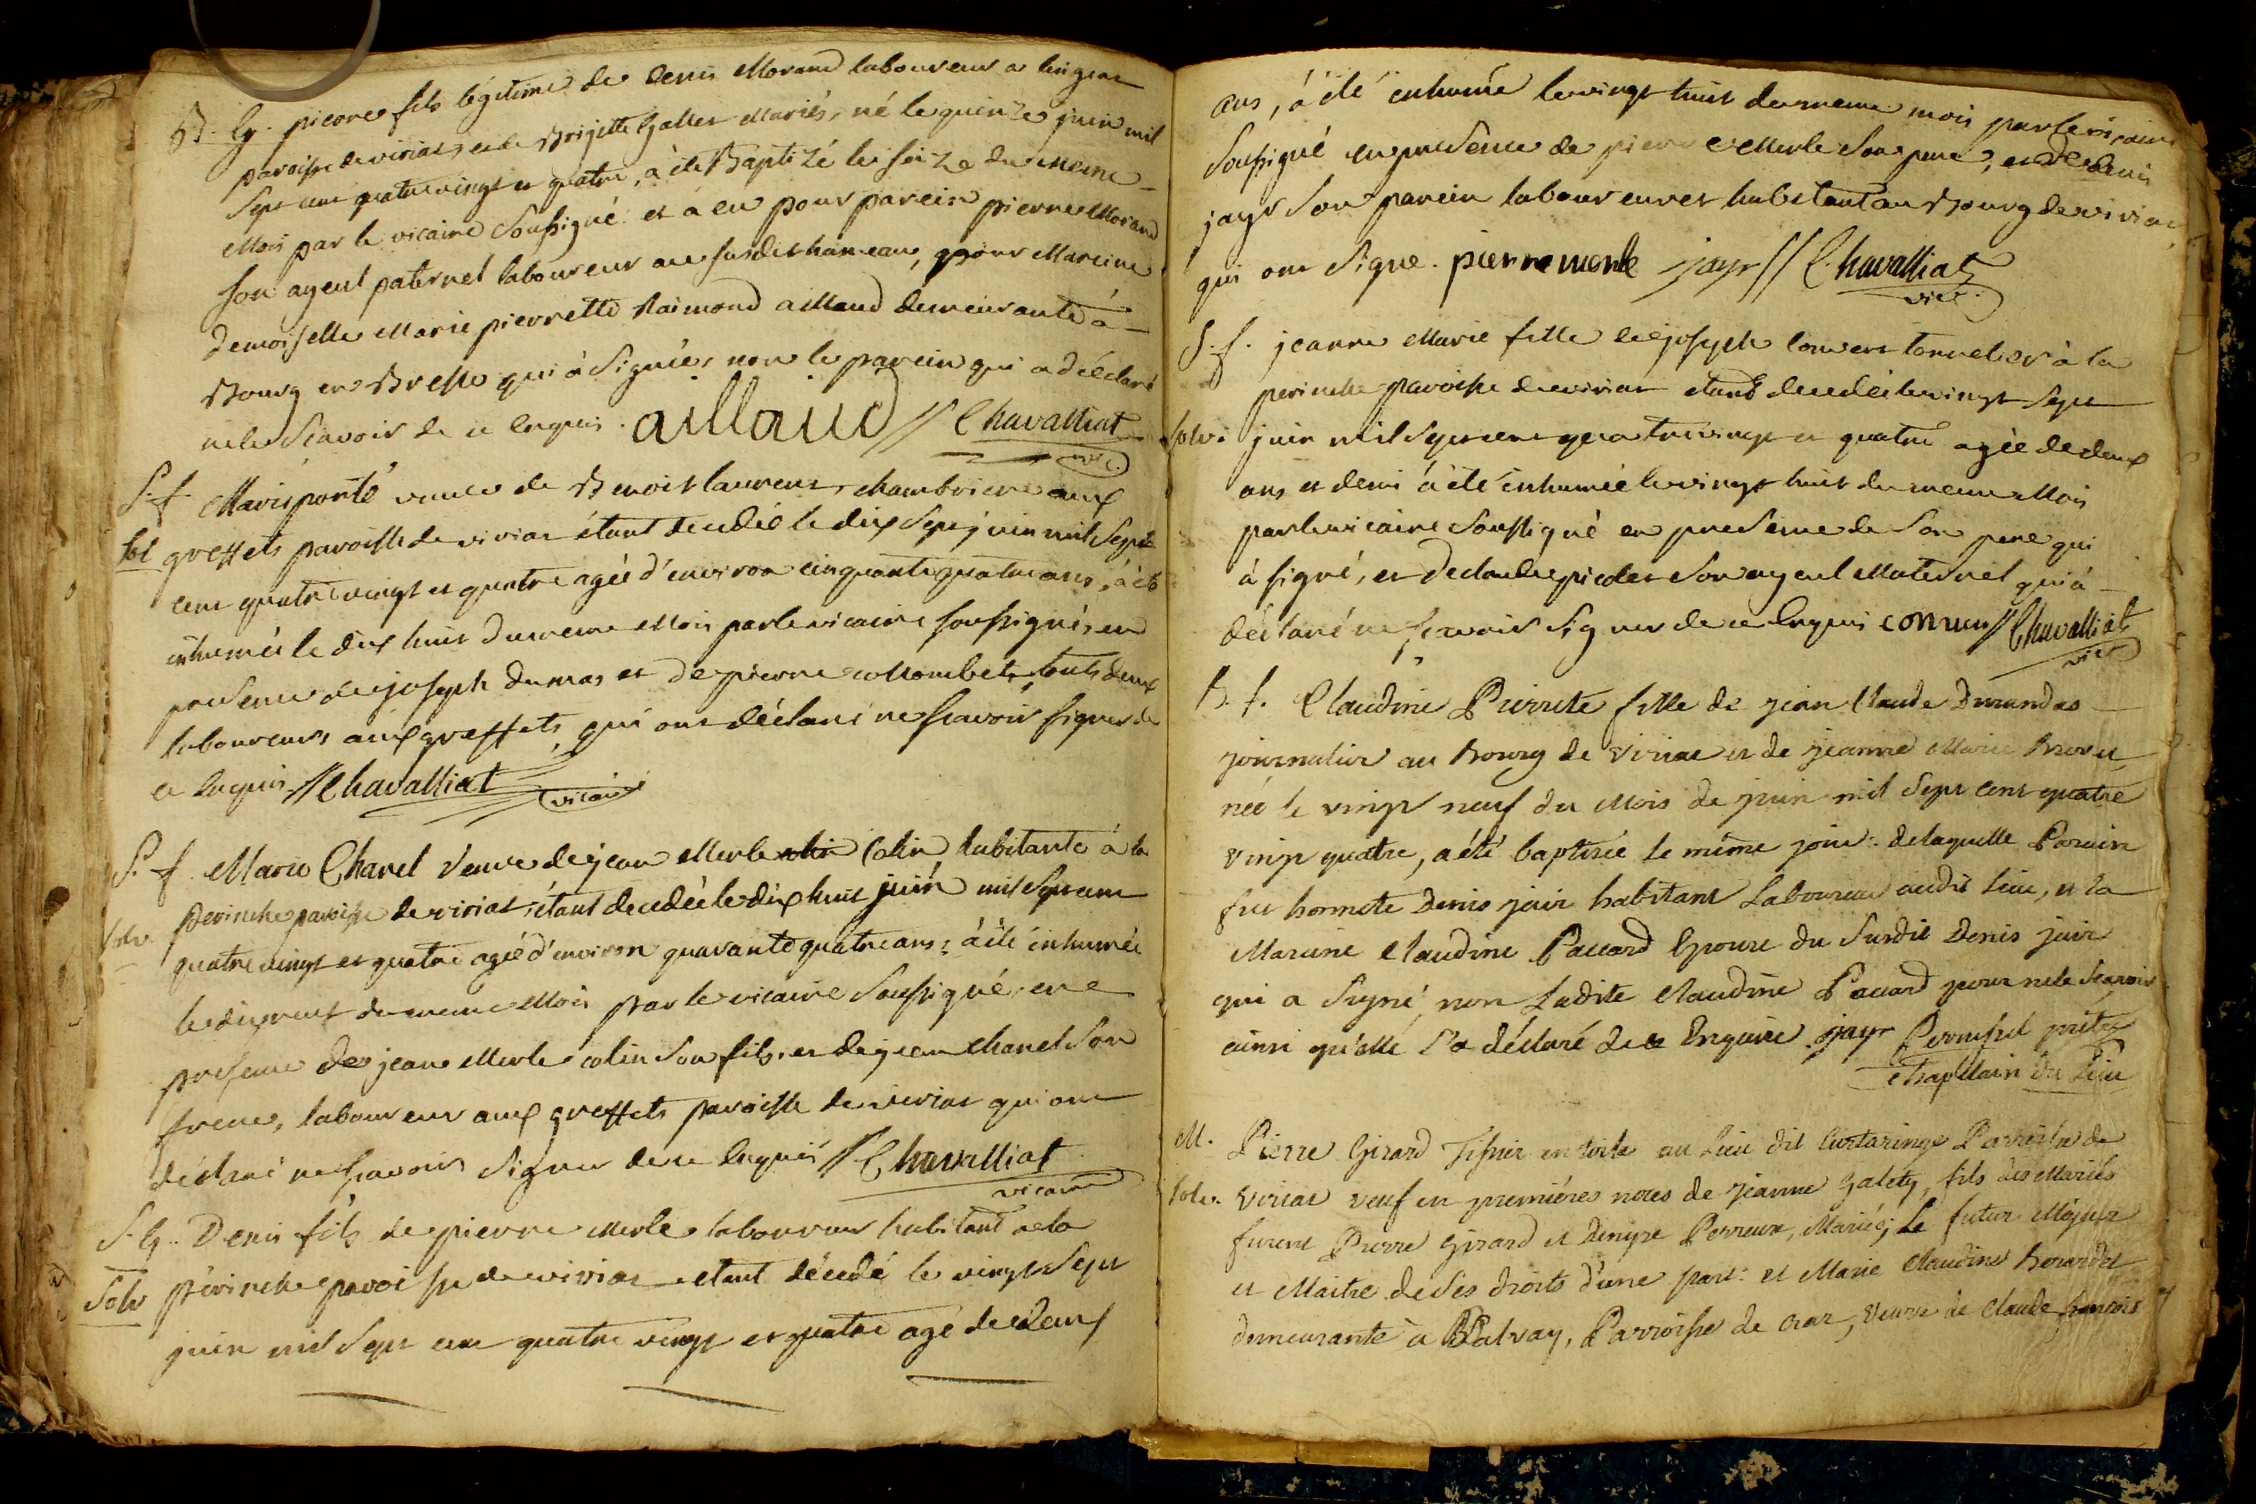 B. g. pierre fils légitime de denis Morand laboureur a lingeat
paroisse de viriat, et de Brigitte Gallet Mariés, né le quinze juin mil
sept cent quatrevingt et quatre, à été Baptizé le seize du meme
Mois par le vicaire soussigné et a eu pour parein pierre Morand
son ayeul paternel laboureur au susdit hameau, & pour Mareine
demoiselle Marie pierrette Raimond aillaud demeurante à
Bourg en Bresse qui à signée, non le parein qui a déclaré
ne le scavoir de ce Enquis. aillaud // Chavalliat
vic.
S. f. Marie ponté veuve de Benoit laurent, chambriere aux
sol greffets paroisse de viriat étant decedée le dix sept juin mil sept
cent quatre vingt et quatre agée d'environ cinquante quatre ans, à été
inhumée le dix huit du meme Mois par le vicaire soussigné, en
presence de joseph dumas et de pierre collombet, touts deux
laboureurs aux greffets, qui ont déclaré ne scavoir signer de
ce Enquis // Chavalliat vicaire
S. f. Marie Chanel veuve de jean Merle colin Colin habitante à la
solv. perinche paroisse de viriat, étant decedée le dix huit juin mil sept cent
quatre vingt et quatre agée d'environ quarante quatre ans, à été inhumée
le dix neuf du meme Mois par le vicaire soussigné, en
presence de jean Merle colin son fils, et de jean chanel son
frere, laboureur aux greffets paroisse de viriat qui ont
déclaré ne scavoir signer de ce Enquis // Chavalliat
vicaire
S. g. Denis fils de pierre Merle laboureur habitant a la
solv perinche paroisse de viriat etant décedé le vingt sept
juin mil sept cent quatre vingt et quatre agé de deux
ans, à été inhumé le vingt huit du meme mois par le vicaire
soussigné en presence de pierre Merle son pere, et de denis
jayr son parein laboureur et habitant au Bourg de viriat,
qui ont signé. pierre merle jayr // Chavalliat
vic.
S. f. jeanne Marie fille de joseph convert tonnelier à la
perinche paroisse de viriat etant decedée le vingt sept
solv. juin mil sept cent quatrevingt et quatre agée de deux
ans et demi à été inhumée le vingt huit du meme Mois
par le vicaire soussigné en presence de son pere qui
à signé, et de claude picolet son ayeul Maternel qui à
déclaré ne scavoir signer de ce Enquis convers // Chavalliat
vic.
B. f. Claudine Pierrette fille de jean Claude Durandas
journalier au Bourg de viriat et de jeanne Marie Brevet
née le vingt neuf du Mois de juin mil sept cent quatre
vingt quatre, a été baptisée le même jour: de laquelle Parain
fut honnete Denis jair habitant Laboureur audit lieu, et la
Maraine Claudine Paccard Epouse du susdit Denis jair
qui a signé, non ladite Claudine Paccard pour ne le scavoir
ainsi qu'elle l'a déclaré de ce Enquise jayr Perruquet prêtre
chapellain du lieu
M. Pierre Girard Tissier en toile au lieu dit Curtaringe Parroisse de
solv. viriat veuf en premiéres noces de jeanne Galety, fils des Mariés
furent Pierre Girard et Denyse Perreux, Mariés; Le futur Majeur
et Maitre de ses droits d'une part: et Marie Claudine Borardet
demeurante a Balvay, Parroisse de Cras, veuve de Claude francois